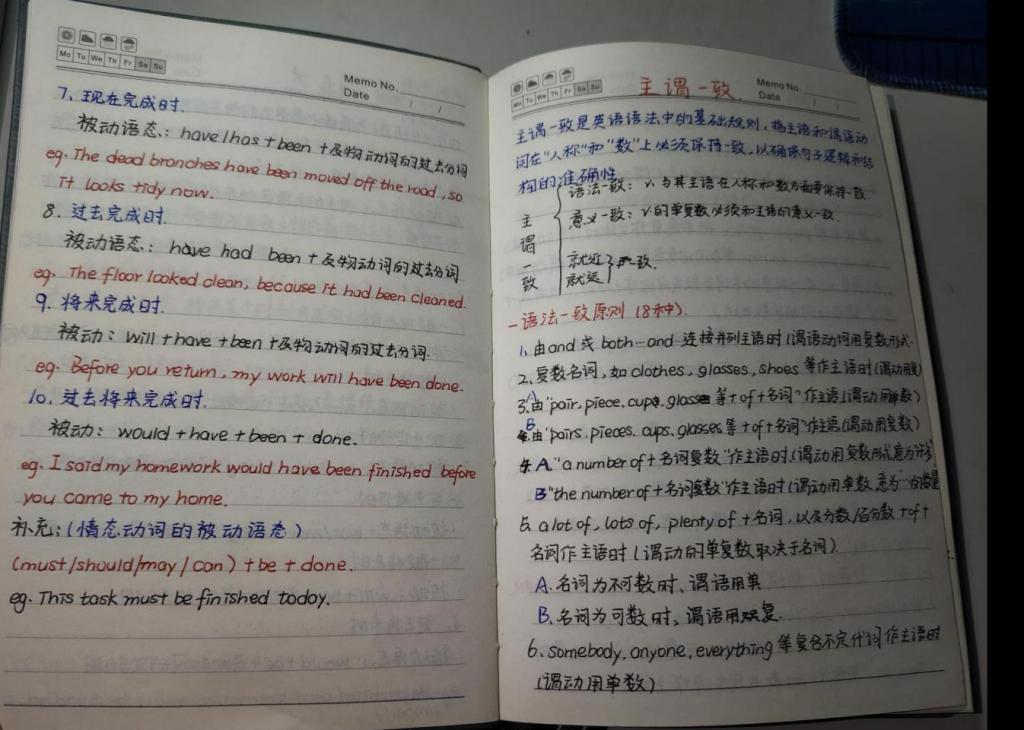 Mo Tu We Th Fr Sa Su
Memo No.
Date / /
7、现在完成时.
被动语态：have/has + been + 及物动词的过去分词
eg. The dead branches have been moved off the road, so
it looks tidy now.
8. 过去完成时.
被动语态：have had been + 及物动词的过去分词
eg. The floor looked clean, because it had been cleaned.
9. 将来完成时.
被动：will + have + been + 及物动词的过去分词.
eg. Before you return, my work will have been done.
10. 过去将来完成时.
被动：would + have + been + done.
eg. I said my homework would have been finished before
you came to my home.
补充：(情态动词的被动语态)
(must/should/may/can) + be + done.
eg. This task must be finished today.
Mo Tu We Th Fr Sa Su
主谓一致.
Memo No.
Date / /
主谓一致是英语语法中的基础规则，指主语和谓语动
词在“人称”和“数”上必须保持一致，以确保句子逻辑和结
构的准确性
主谓一致
语法一致：v. 与其主语在人称和数方面要保持一致.
意义一致：v. 的单复数必须和主语的意义一致.
就近
就远
一致.
一语法一致原则 (8种).
1. 由and 或 both…and 连接并列主语时(谓语动词用复数形式
2. 复数名词，如 clothes, glasses, shoes 等作主语时(谓动用复)
3. A 由“pair, piece, cup, glass 等 + of + 名词”作主语(谓动用单数)
B 由“pairs, pieces, cups, glasses 等 + of + 名词”作主语(谓动用复数)
4. A. “a number of + 名词复数”作主语时.(谓动用复数形式意为许多
B “the number of + 名词复数”作主语时(谓动用单数 意为…的数量
5. a lot of, lots of, plenty of + 名词，以及分数/百分数 + of +
名词作主语时(谓动的单复数取决于名词)
A. 名词为不可数时、谓语用单
B. 名词为可数时、谓语用复.
6. somebody, anyone, everything 等复合不定代词作主语时
(谓动用单数)